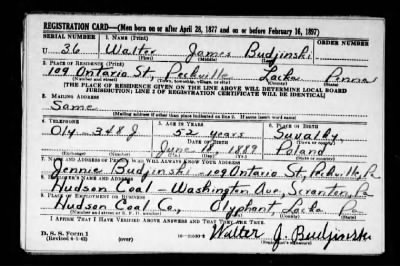 REGISTRATION CARD—(Men born on or after April 28, 1877 and on or before February 16, 1897)
SERIAL NUMBER 1. NAME (Print) ORDER NUMBER
U 36 Walter James Budjinski
(First) (Middle) (Last)
2. PLACE OF RESIDENCE (Print)
109 Ontario St, Peckville Lacka Penna
(Number and street) (Town, township, village, or city) (County) (State)
[THE PLACE OF RESIDENCE GIVEN ON THE LINE ABOVE WILL DETERMINE LOCAL BOARD
JURISDICTION; LINE 2 OF REGISTRATION CERTIFICATE WILL BE IDENTICAL]
3. MAILING ADDRESS
Same
(Mailing address if other than place indicated on line 2. If same insert word same)
4. TELEPHONE 5. AGE IN YEARS 6. PLACE OF BIRTH
Oly 348J 52 years Suvalky
DATE OF BIRTH (Town or county)
June 1889 Poland
(Mo.) (Day) (Yr.) (State or country)
7. NAME AND ADDRESS OF PERSON WHO WILL ALWAYS KNOW YOUR ADDRESS
Jennie Budjinski - 109 Ontario St, Peckville, Pa
8. EMPLOYER'S NAME AND ADDRESS
Hudson Coal - Washington Ave, Scranton, Pa
9. PLACE OF EMPLOYMENT OR BUSINESS
Hudson Coal Co., Olyphant, Lacka Pa
(Number and street or R. F. D. number) (Town) (County) (State)
I AFFIRM THAT I HAVE VERIFIED ABOVE ANSWERS AND THAT THEY ARE TRUE.
D. S. S. Form 1
(Revised 4-1-42) (over) Walter J. Budjinski
(Registrant's signature)